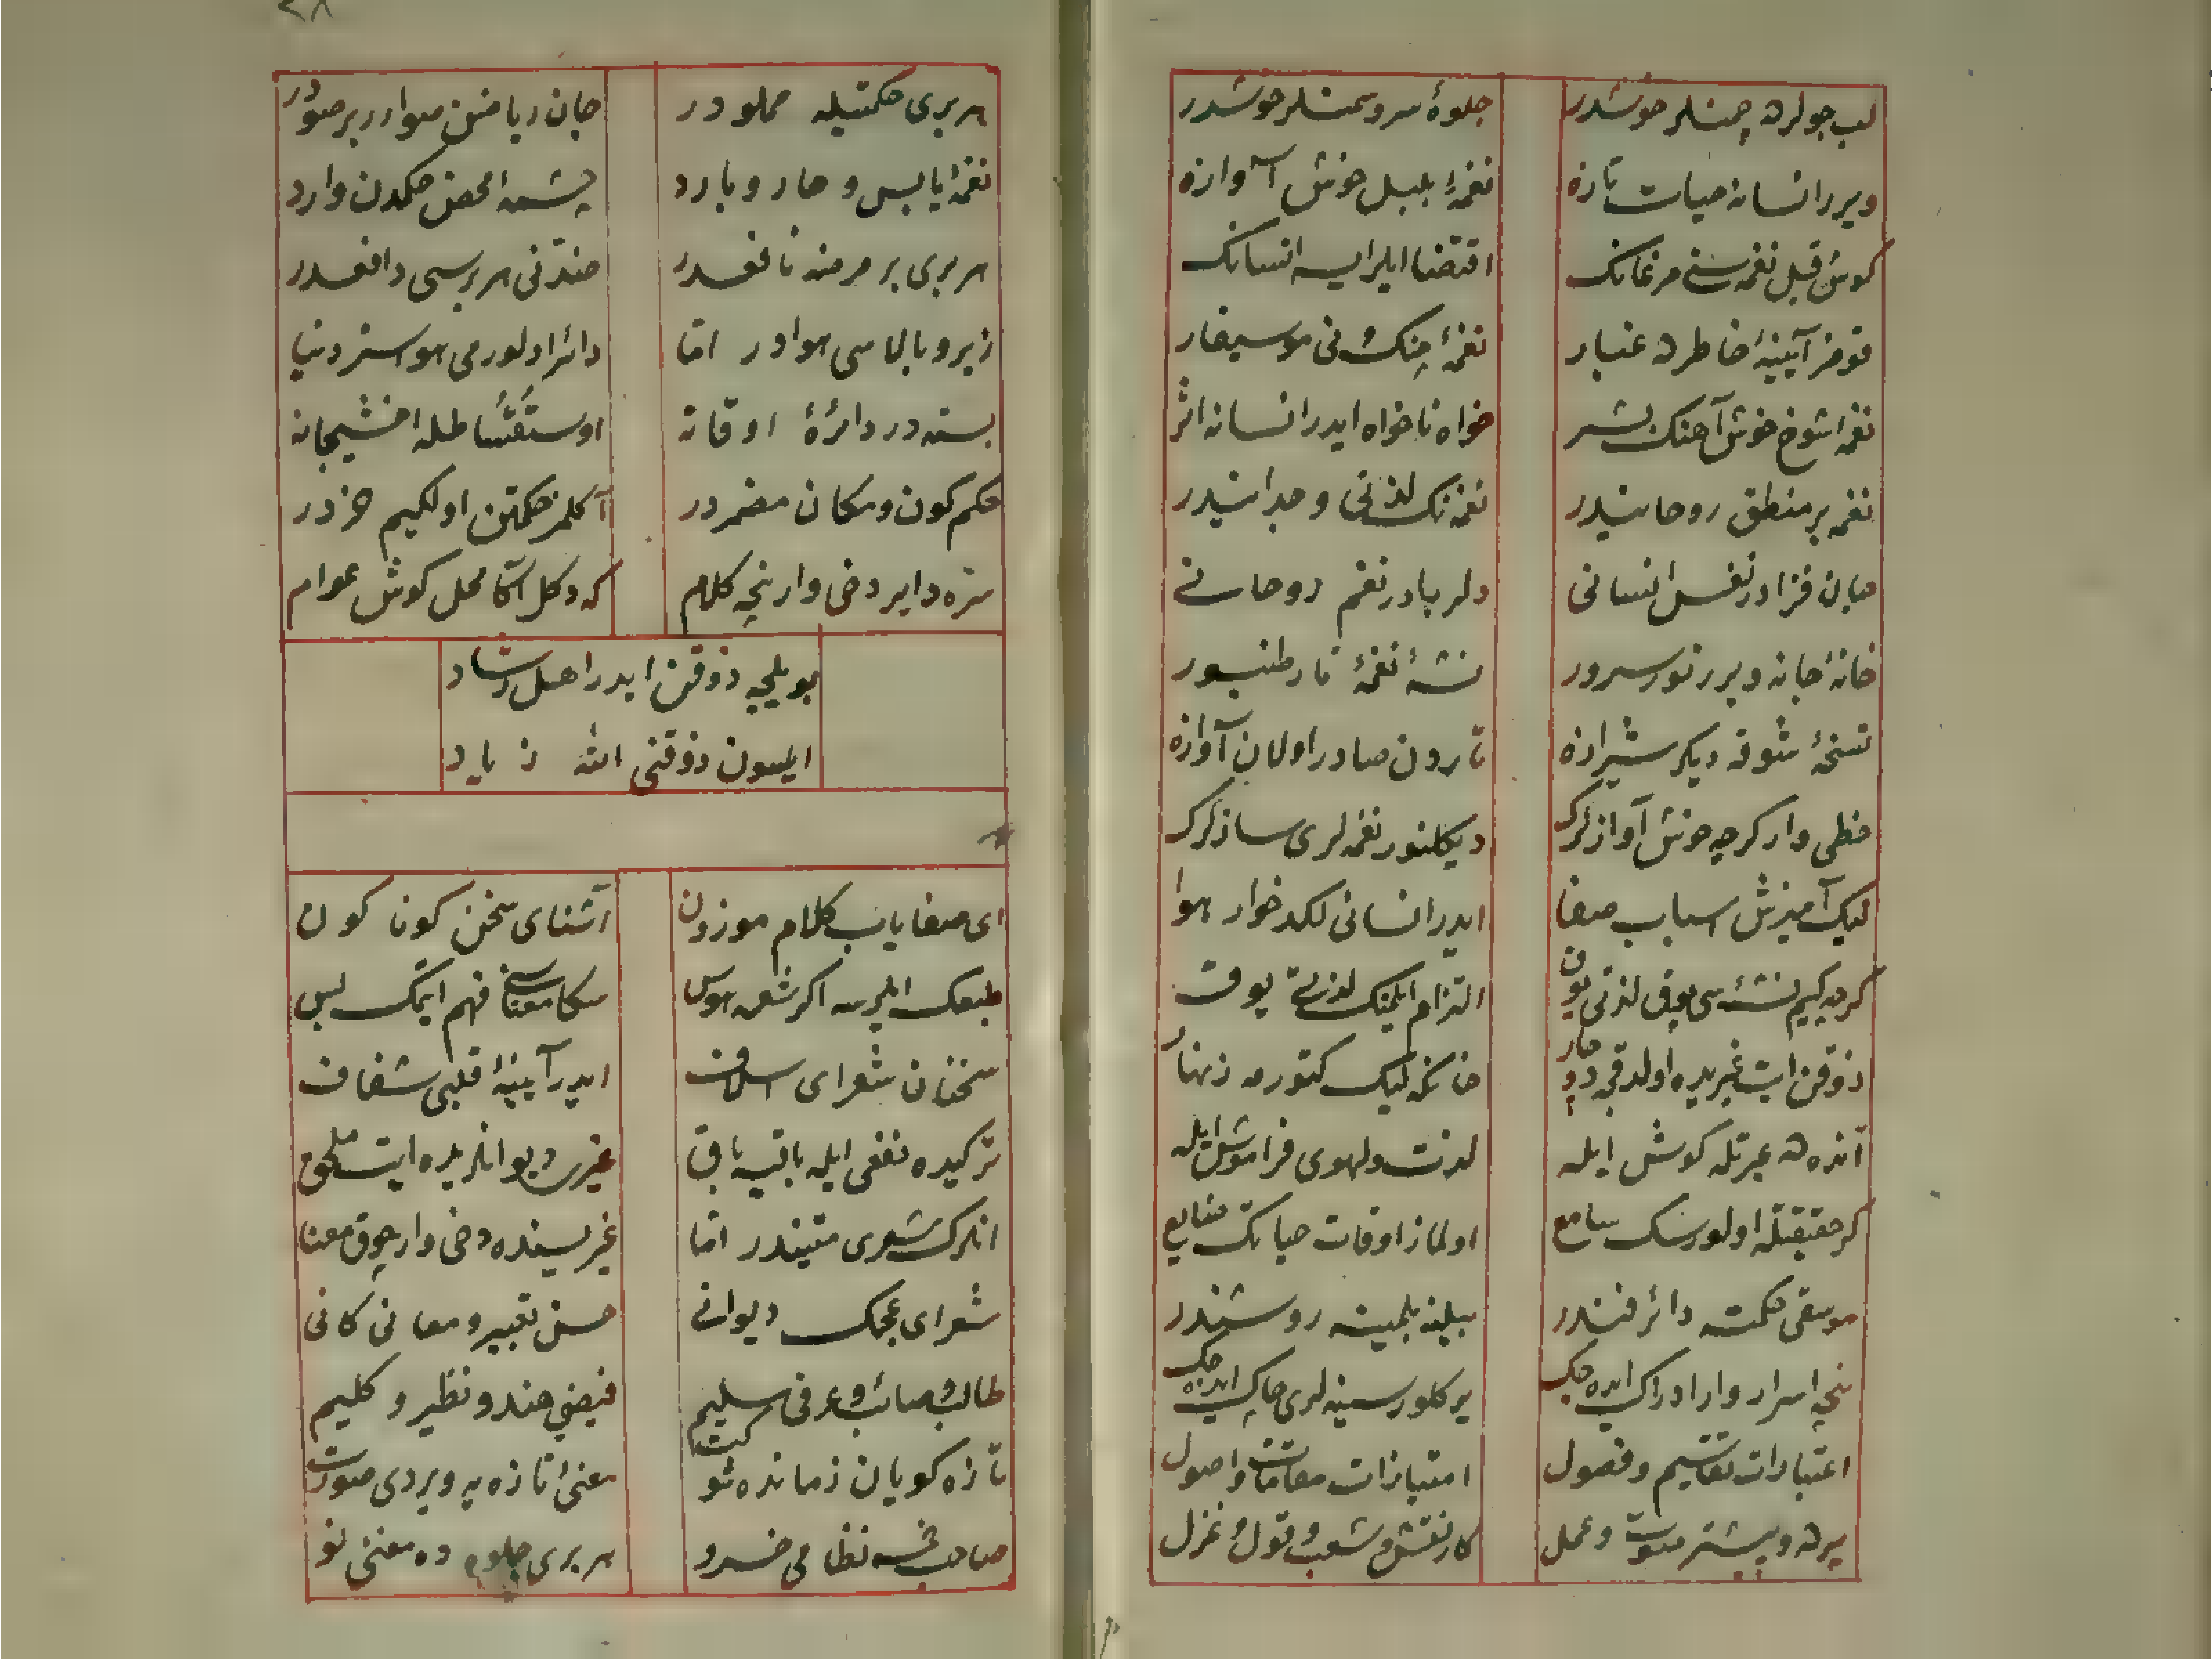 لب جولرده چمنلر خوشدر
جلوۀ سرو سمنلر خوشدر
ویرر انسانه حیات تازه
نغمۀ بلبل خوش آوازه
کوش قیل نغمه سنی مرغانک
اقتضا ایلر ایسه انسانک
قومز آیینۀ خاطرده غبار
نغمۀ چنک و نی موسیقار
نغمۀ شوخ خوش آهنک بشر
خواه ناخواه ایدر انسانه اثر
نغمه بر منطق روحانیدر
نغمه نک لذتی وجدانیدر
جان فزادر نفس انسانی
دلربادر نغم روحانی
خانۀ جانه ویرر نور سرور
نشئۀ نغمۀ تار طنبور
نسخۀ شوقه دیکر شیرازه
تاردن صادر اولان آوازه
حظی وار کرچه خوش آوازلرک
دیکلنور نغمه لری سازلرک
لیک آمیزش اسباب صفا
ایدر انسانی لکدخوار هوا
کرچه کیم نشئه سی یوق لذتی یوق
التزام ایلمنک لذتی یوق
ذوقن ایت غیریده اولدقجه دوچار
خانه که لیک کتورمه زنهار
آنده ده عبرتله کوش ایله
لذت و لهوی فراموش ایله
کر حقیقتله اولورسک سامع
اولماز اوقات حیاتک ضایع
موسقی حکمته دائر فندر
بیلینه بلمینه روشندر
نیجه اسرار وار ادراک ایده جک
یر کلور سینه لری چاک ایده جک
اعتبارات تقاسیم و فصول
امتیازات مقامات و اصول
پرده و بیشتر صوت و عمل
کار و نقش و شعب و قول و غزل
هر بری حکمتیله مملودر
جان ریاضن صوارر بر صودر
نغمۀ یابس و حار و بارد
چشمۀ محض حکمدن وارد
هر بری بر مرضه نافعدر
ضدنی هر بریسی دافعدر
زیر و بالاسی هوادر اما
دائر اولورمی هواسز دنیا
بسته در دائرۀ اوقاته
حکم کون و مکان مضمردر
آکلمز حکمتن اولکیم خردر
سزه دایر دخی وار نیجه کلام
که دکل آکا محل کوش عوام
بویلجه ذوقن ایدر اهل رشاد
ایلسون ذوقنی الله زیاد
ای صفایاب کلام موزون
آشنای سخن کوناکون
طبعک ایلرسه اکر شعره هوس
سکا معناسنی فهم ایتمک بس
سخنان شعرای اسلاف
ایدر آیینۀ قلبی شفاف
ترکیده نفعی ایله باقیه باق
غیری دیوانلریده ایت ملحق
انلرک شعری متیندر اما
غیریسنده دخی وار چوق معنا
شعرای عجمک دیوانی
حسن تعبیر و معانی کانی
طالب و صائب و عرفی سلیم
فیضی هند و نظیر و کلیم
تازه کویان زمانده شوکت
معنئ تازه یه ویردی صورت
صاحب خمسه نظامی خسرو
هر بری جلوه ده معنی نو